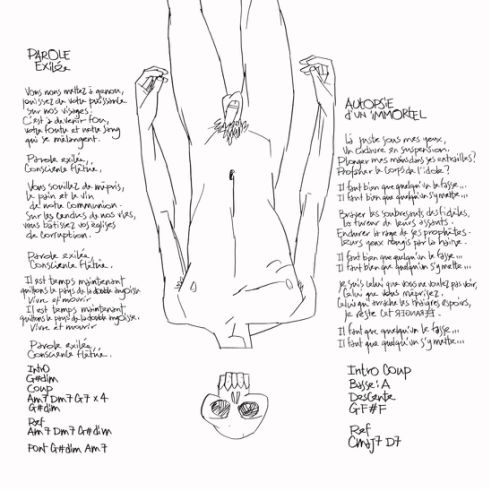 PAROLE
EXILÉE
Vous nous mettez à genou,
jouissez de votre puissance
sur nos visages.
C'est à devenir fou,
votre foutre et notre sang
qui se mélangent.
Parole exilée,
Conscience
Vous souillez de mépris,
le pain et le vin
de notre communion.
Sur les cendres de nos vies,
vous bâtissez vos églises
de corruption.
Parole exilée,
Conscience
Il est temps maintenant
quittons le pays de la double angoisse
Vivre et mourir
Il est temps maintenant
quittons le pays de la double angoisse.
Vivre et mourir
Parole exilée,
Conscience
Intro
G#dim
Coup
Am7 Dm7 G7 x 4
G#dim
Ref
Am7 Dm7 G#dim
Pont G#dim Am7
AUTOPSIE
D'UN IMMORTEL
Là juste sous mes yeux,
Un cadavre en suspension.
Plonger mes mains dans ses entrailles?
Profaner le corps de l'idole?
Il faut bien que quelqu'un le fasse...
Il faut bien que quelqu'un s'y mette...
Braver les soubresauts des fidèles,
la fureur de leurs assauts.
Endurer la rage de ses prophètes
leurs yeux rougis par la haine.
Il faut bien que quelqu'un le fasse...
Il faut bien que quelqu'un s'y mette...
Je suis celui que vous ne voulez pas voir,
Celui que vous méprisez.
Celui qui arrache les maigres espoirs,
je reste cet
Il faut que quelqu'un le fasse...
Il faut que quelqu'un s'y mette...
Intro Coup
Basse: A
Descente
G F# F
Ref
Cmaj7 D7